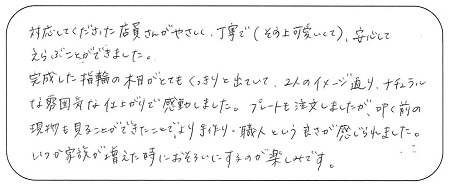 対応してくださった店員さんがやさしく、丁寧で(その上可愛いくて)、安心して
えらぶことができました。
完成した指輪の木目がとてもくっきりと出ていて、2人のイメージ通り、ナチュラル
な雰囲気な仕上がりで感動しました。プレートも注文しましたが、叩く前の
現物も見ることができたことでより手作り・職人という良さが感じられました。
いつか家族が増えた時におそろいにするのが楽しみです。